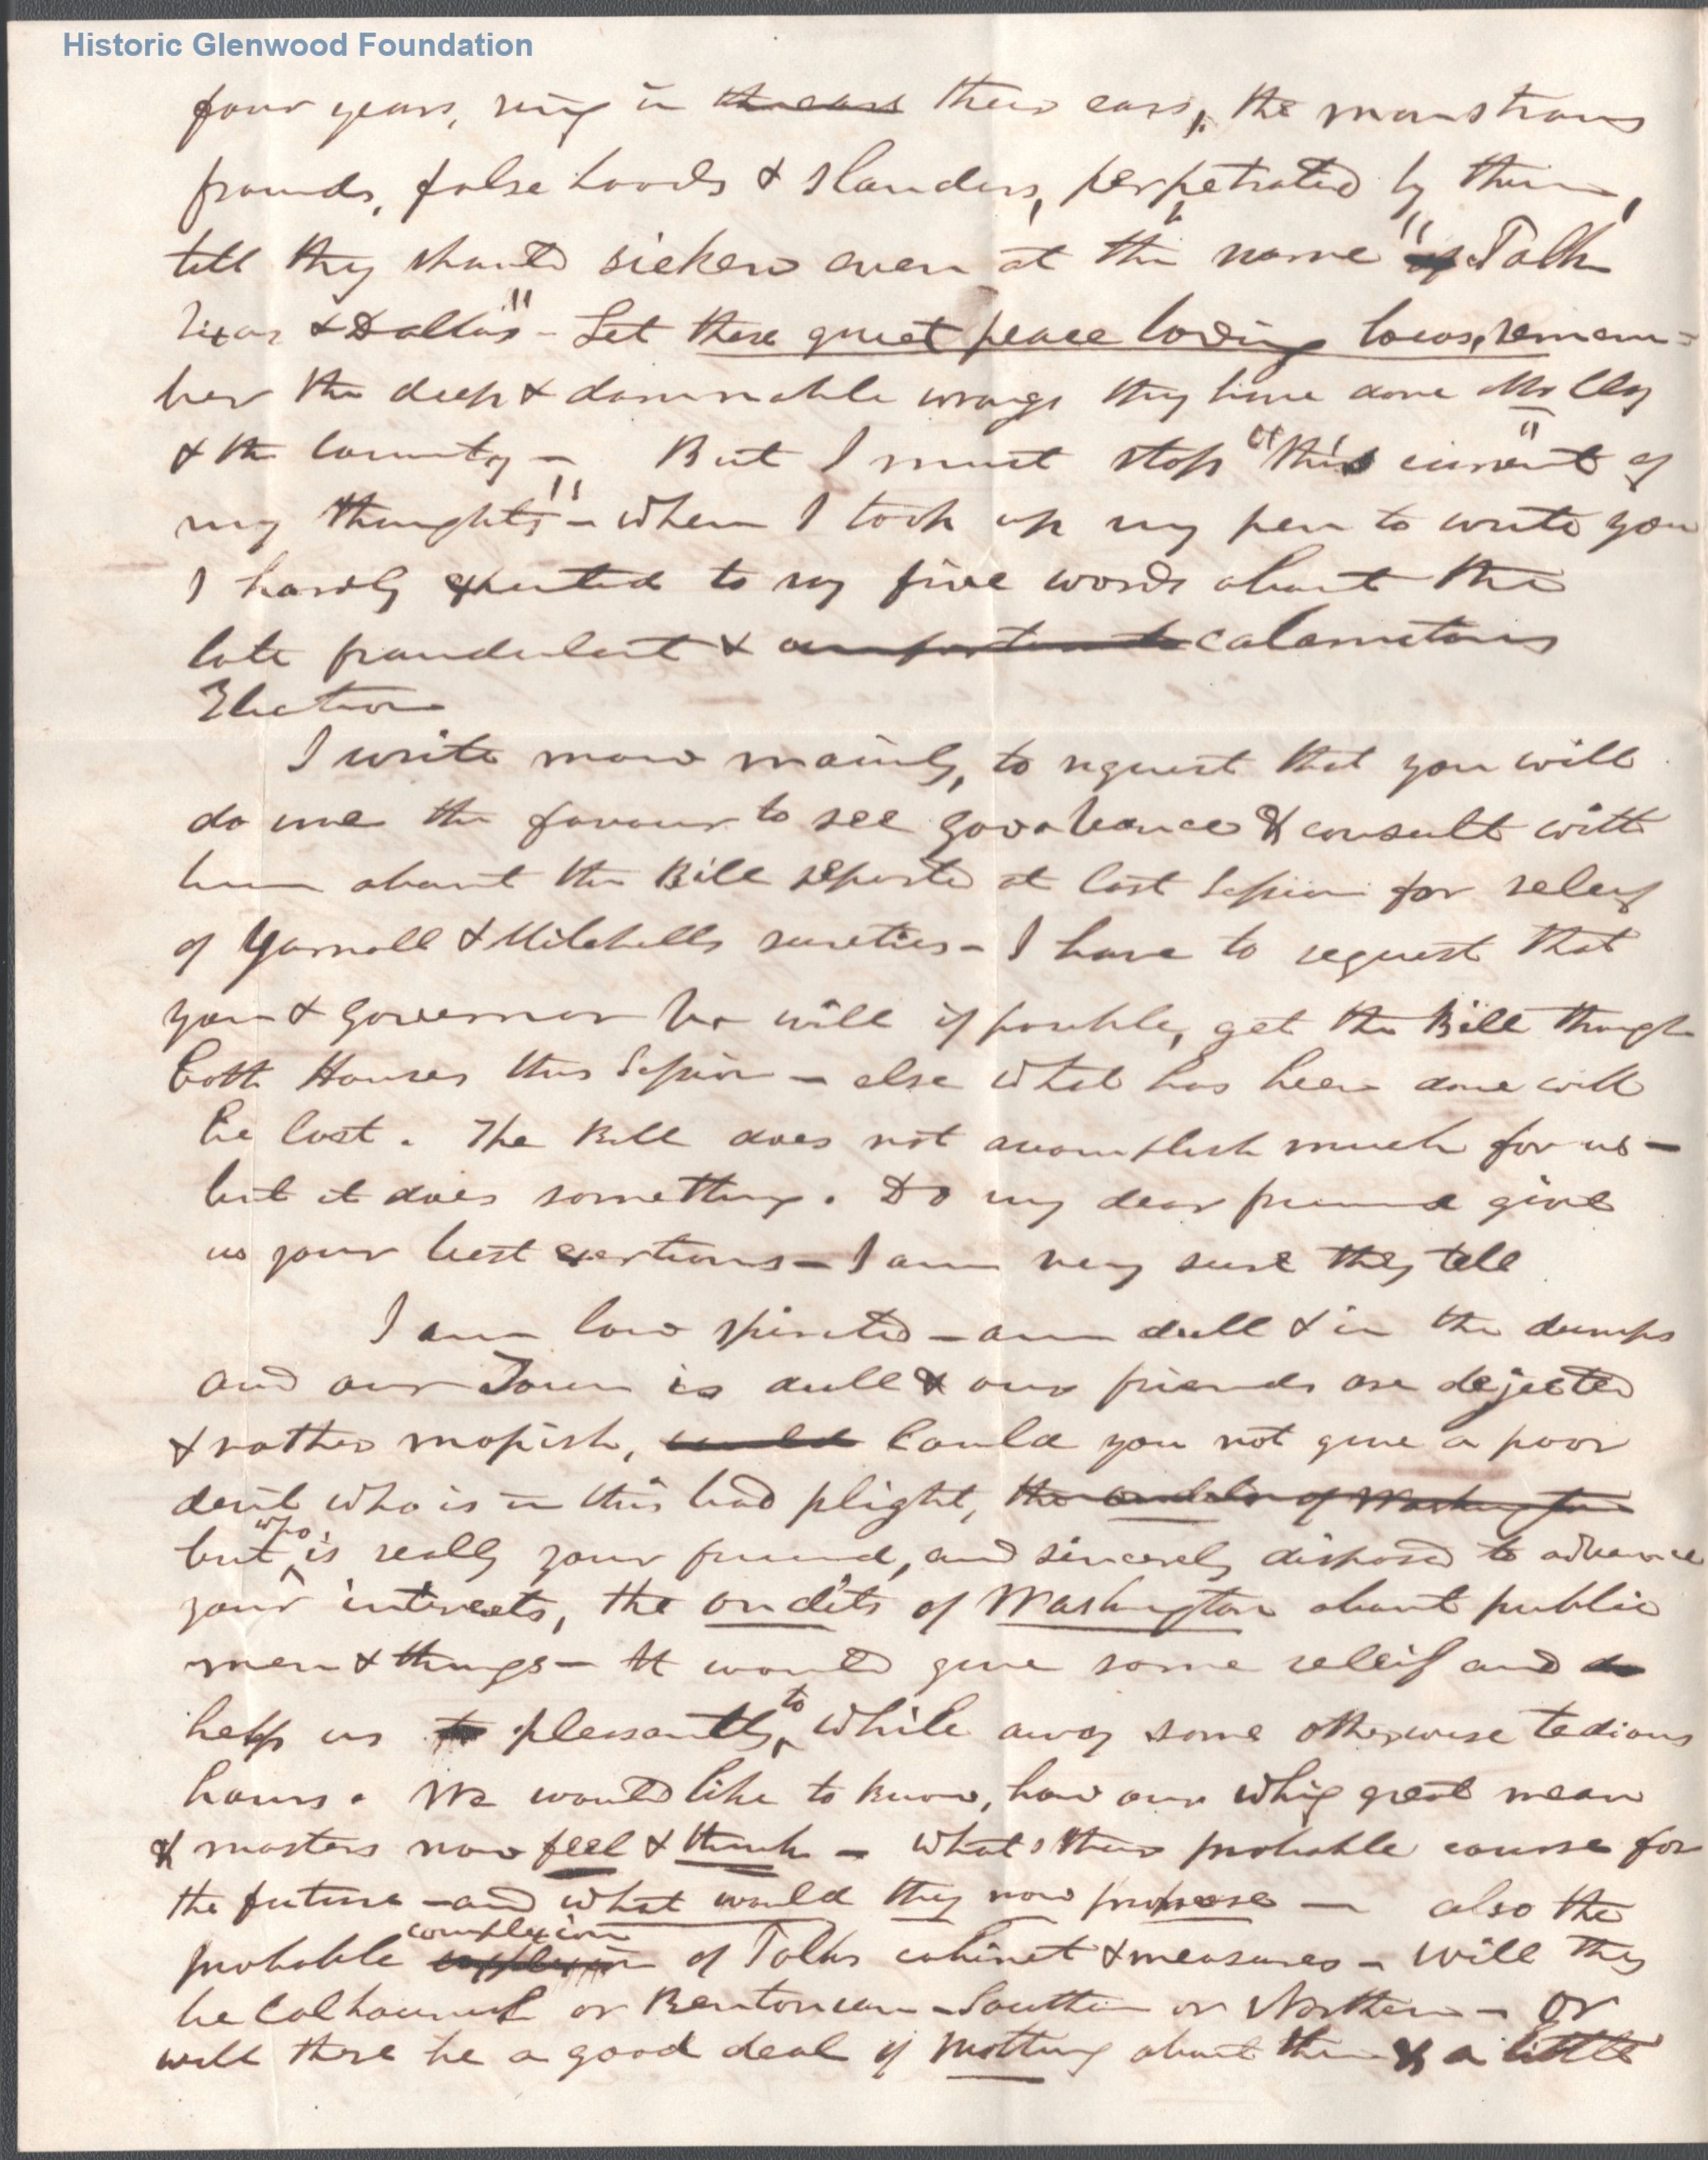 Historic Glenwood Foundation
four years, ring in their ears, the monstrous
frauds, false hoods & slanders, perpetrated by them,
till they should sicken even at the name "of Polk
Texas & Dallas" - Let these quiet peace loving locos, remem=
ber the deep & damnable wrongs they have done Mr Clay
& the Country - But I must stop "this current of
my thoughts" - When I took up my pen to write you
I hardly expected to say five words about the
late fraudulent & unfortunate calamitous
Election
I write now mainly, to request that you will
do me the favour to see Gov. Vance & consult with
him about the Bill reported at last Session for releif
of Yarnall & Mitchells sureties - I have to request that
you & Governor V. will if possible, get the Bill through
both Houses this Session - else what has been done will
be lost. The Bill does not acomplish much for us -
but it does something. Do my dear friend give
us your best exertions - I am very sure they tell
I am low spirited - am dull & in the dumps
and our Town is dull & our friends are dejected
& rather mopish, could Could you not give a poor
devil who is in this bad plight, the ondits of Washington
but who is really your friend, and sincerely disposed to advance
your interests, the ondits of Washington about public
men & things - It would give some releif and
help us to pleasantly to while away some otherwise tedious
hours. We would like to know, how our Whig great mean
& masters now feel & think - what's their probable course for
the future - and what would they now propose - also the
probable complexion of Polks cabinet & measures - will they
be Calhounist or Bentonian - Southern or Northern - or
will there be a good deal of nothing about them & a little